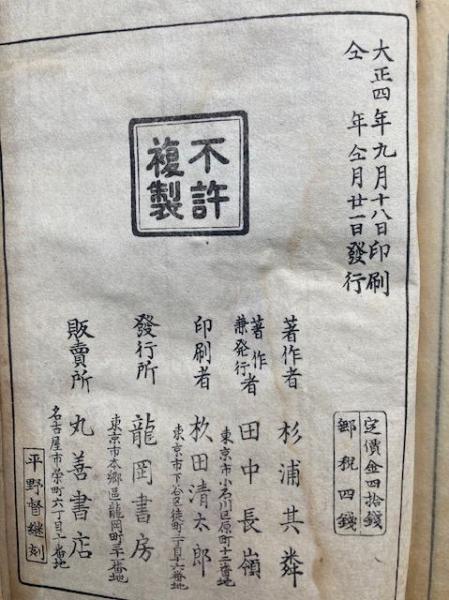 大正四年九月十八日印刷
仝年仝月廿一日發行
不許
複製
定價金四拾錢
郵税四錢
著作者 杉浦其粦
著作者兼発行者 田中長嶺
東京市小石川区原町十二番地
印刷者 杦田清太郎
東京市下谷区徒町二丁目十六番地
發行所 龍岡書房
東京市本郷區龍岡町 番地
販賣所 丸善書店
名古屋市栄町六丁目 番地
平野督継刻